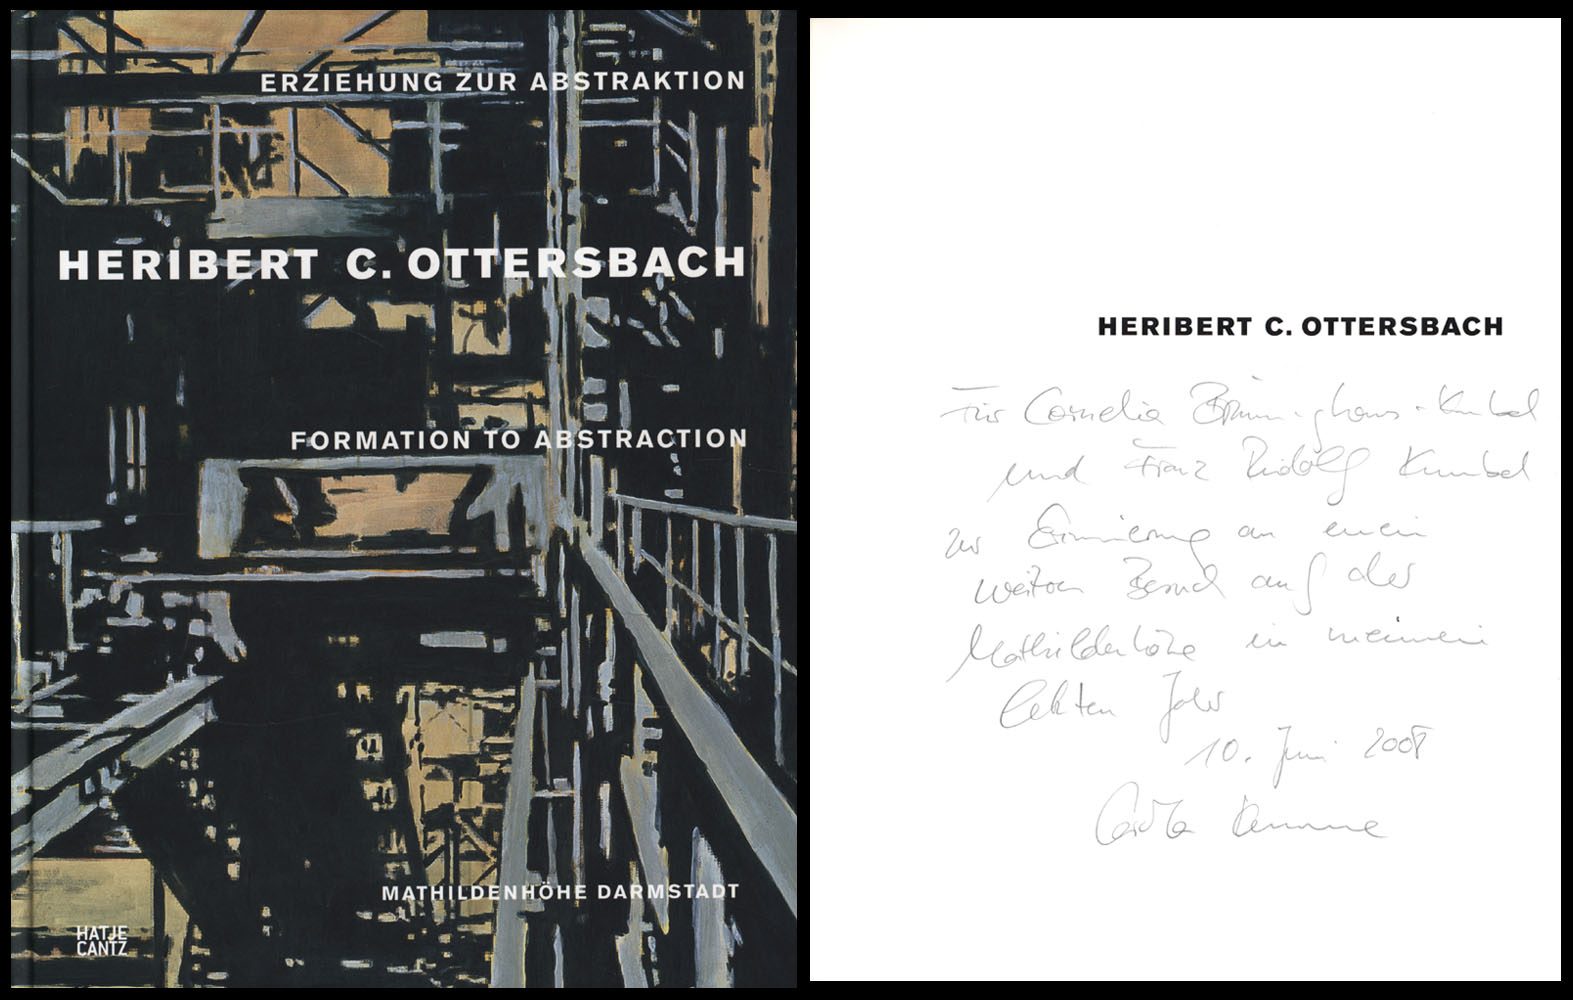 ERZIEHUNG ZUR ABSTRAKTION
HERIBERT C. OTTERSBACH
FORMATION TO ABSTRACTION
MATHILDENHÖHE DARMSTADT
HATJE
CANTZ
HERIBERT C. OTTERSBACH
Für Cornelia
und Franz Rudolf
zur Erinnerung an
Besuch auf der
Mathildenhöhe in meinem
letzten Jahr
10. Juni 2008
Carola